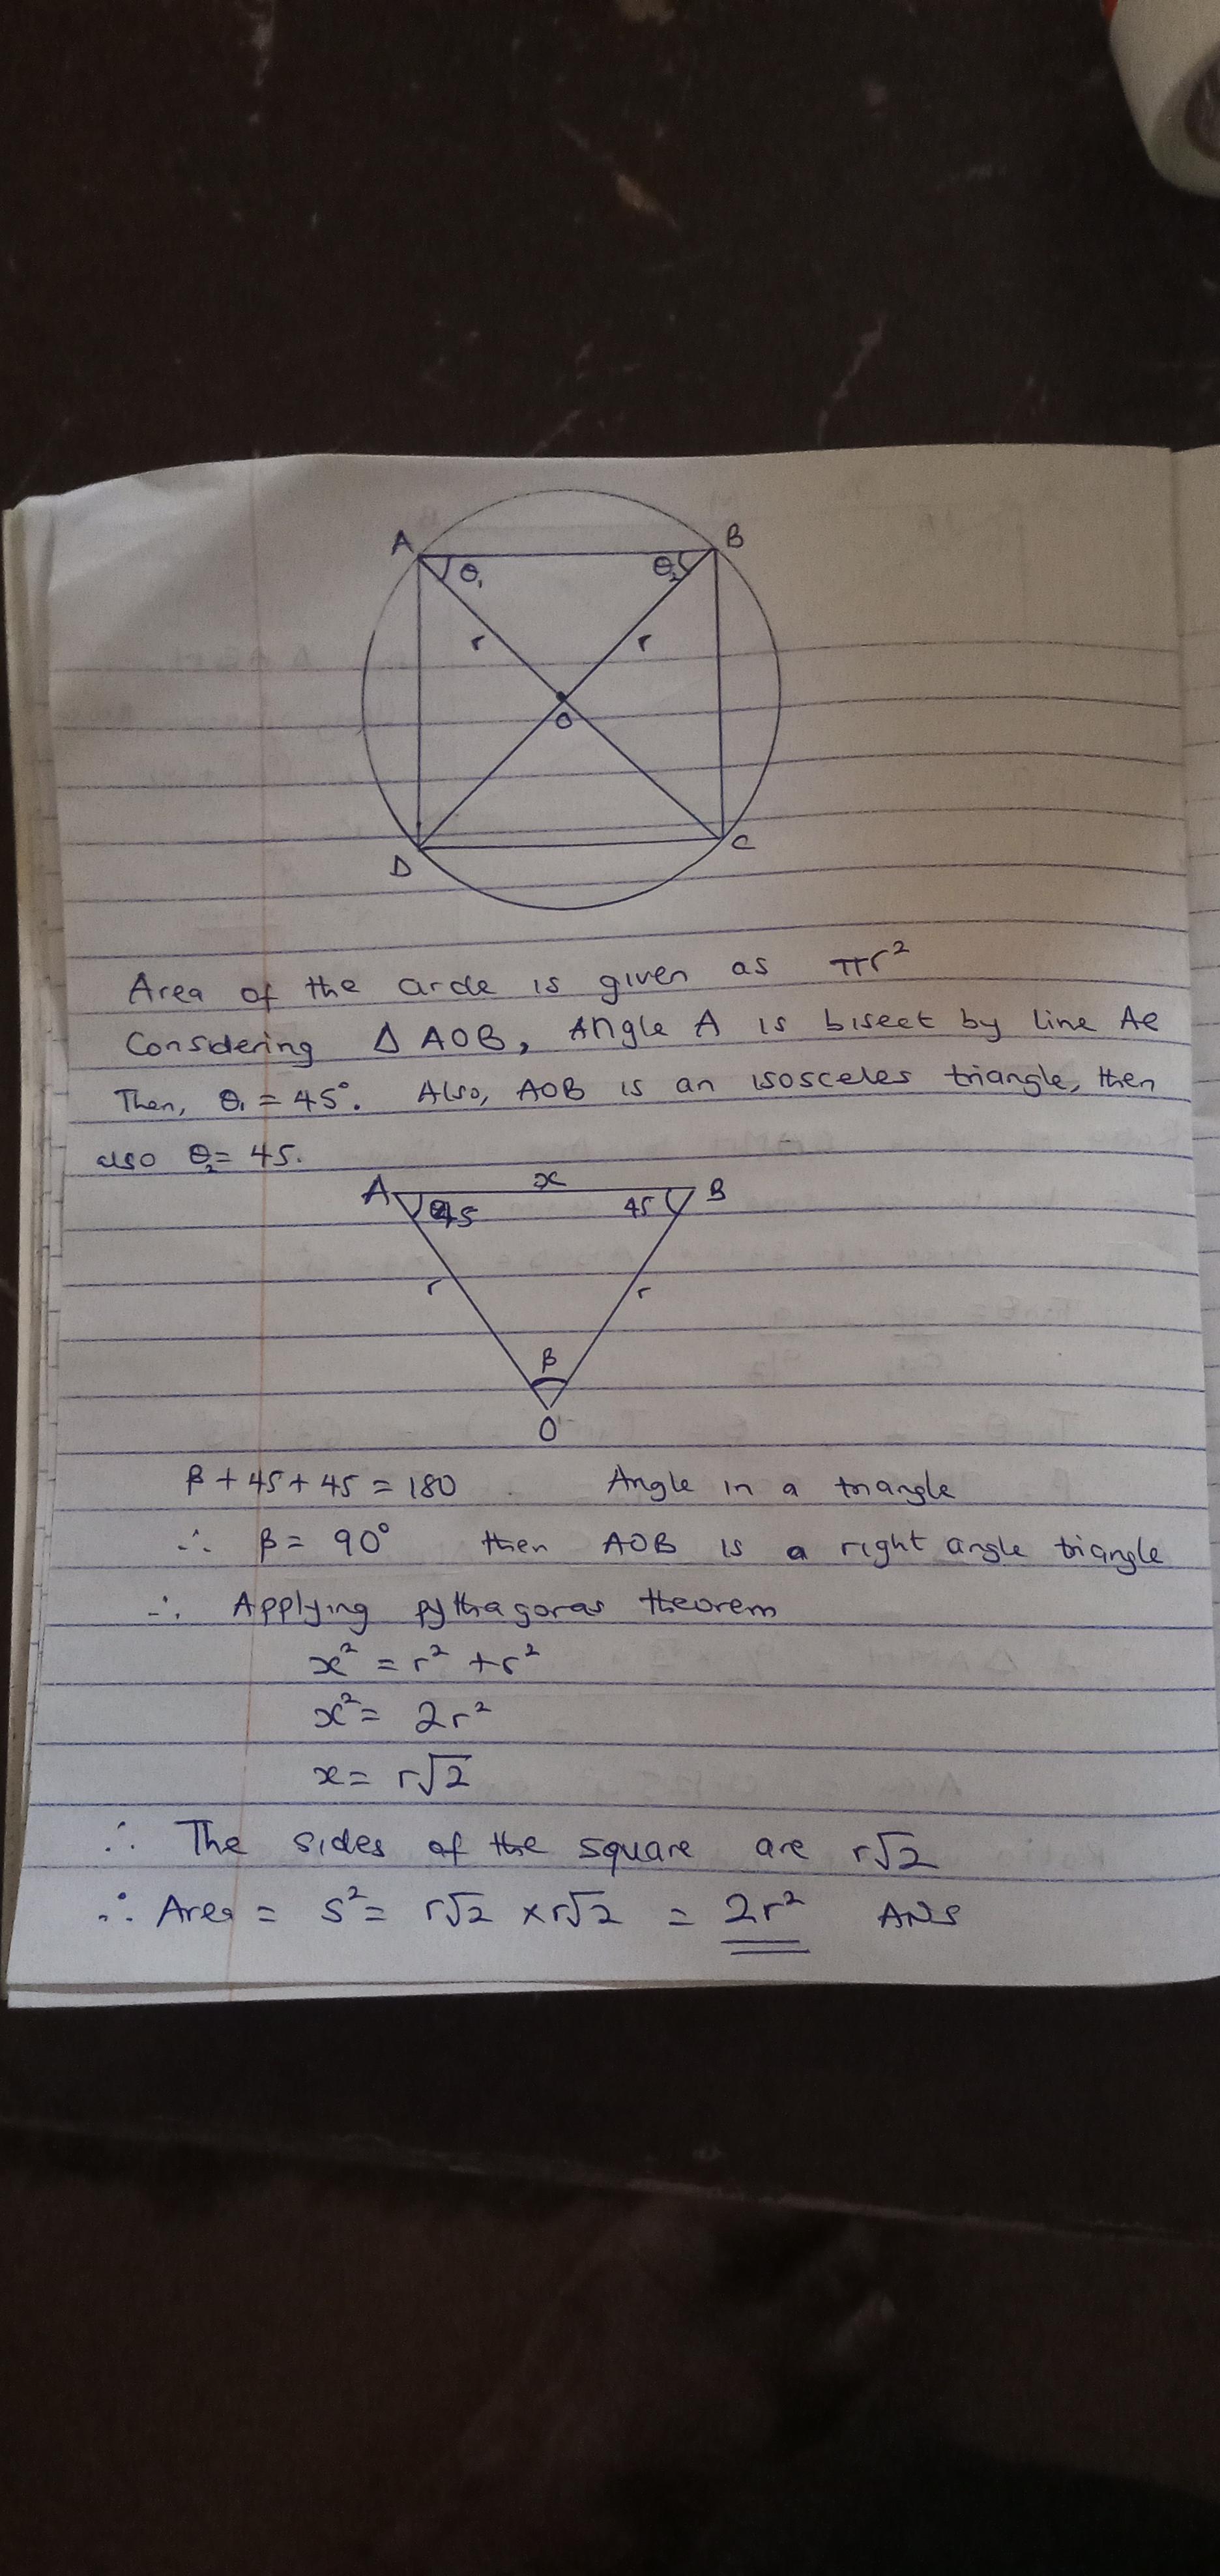 A
B
θ₁
θ₂
r
r
O
D
C
Area of the circle is given as πr²
Considering Δ AOB, Angle A is bisect by line AC
Then, θ₁ = 45°. Also, AOB is an isosceles triangle, then
also θ₂ = 45.
x
A
B
45
45
r
r
β
O
β + 45 + 45 = 180 Angle in a triangle
∴ β = 90° then AOB is a right angle triangle
∴ Applying pythagoras theorem
x² = r² + r²
x² = 2r²
x = r√2
∴ The sides of the square are r√2
∴ Area = s² = r√2 × r√2 = 2r² ANS